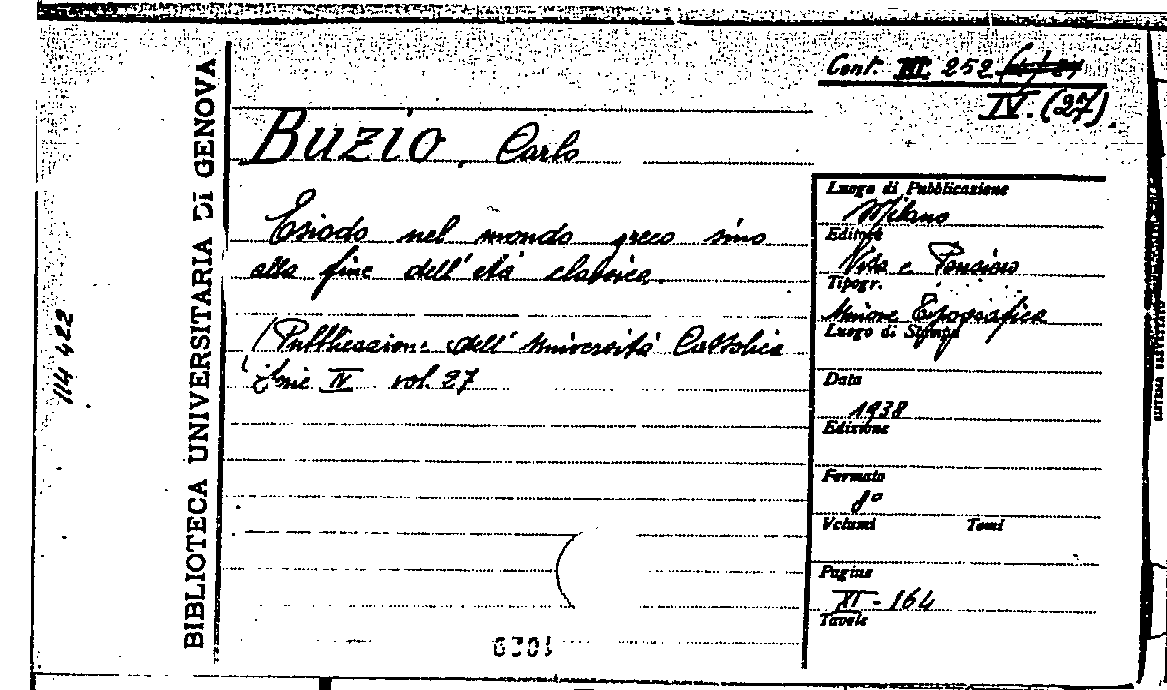 Cont. III 252
IV. (27).
BUZIO, Carlo
Esiodo nel mondo greco sino
alla fine dell'età classica.
(Pubblicazione dell'Università Cattolica
Serie IV vol. 27
Luogo di Pubblicazione
Milano
Editore
Vita e Pensiero
Tipogr.
Unione Tipografica
Luogo di Stampa
Data
1938
Edizione
Formato
8°
Volumi Tomi
Pagine
XI-164
Tavole
BIBLIOTECA UNIVERSITARIA DI GENOVA
114422